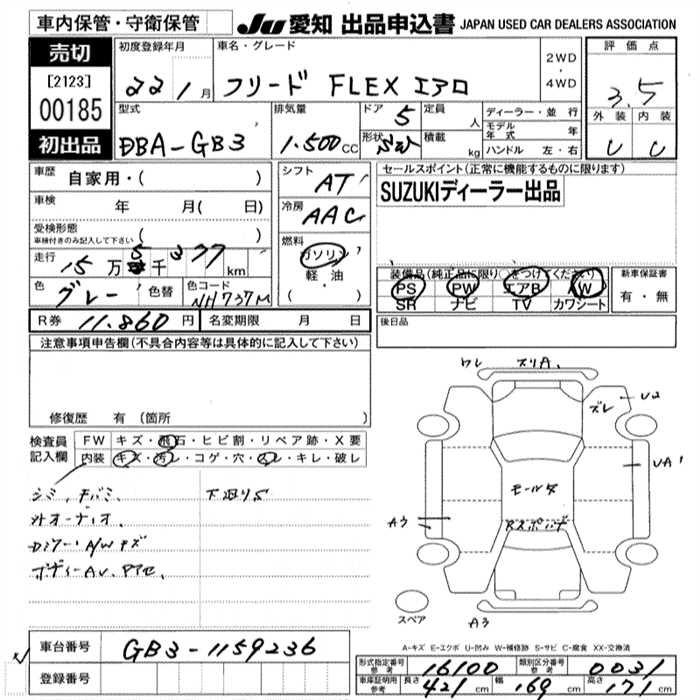 車内保管・守衛保管
JU 愛知 出品申込書 JAPAN USED CAR DEALERS ASSOCIATION
売切
[2123]
00185
初出品
初度登録年月
22 1月
車名・グレード
フリード FLEX エアロ
2WD
・
4WD
評価点
3.5
外装 内装
C C
型式
DBA-GB3
排気量
1.500 cc
ドア 5
形状
定員 人
積載 kg
ディーラー・並行
モデル年式 年
ハンドル 左・右
車歴 自家用・( )
車検 年 月( 日)
受検形態
車検付きのみ記入して下さい ( )
走行 15万 5千 377 km
色 グレー 色替 色コード NH737M
シフト AT
冷房 AAC
燃料 ガソリン
軽・油
(・ )
セールスポイント(正常に機能するものに限ります)
SUZUKIディーラー出品
装備品(純正品に限り○をつけてください)
PS PW エアB W
SR ナビ TV カワシート
新車保証書
有・無
R券 11.860円 名変期限 月 日
後日品
注意事項申告欄(不具合内容等は具体的に記入して下さい)
修復歴 有(箇所
検査員記入欄
FW キズ・飛石・ヒビ割・リペア跡・X要
内装 キズ・汚レ・コゲ・穴・スレ・キレ・破レ
シミ
下廻りS
外オーディオ
A/Wキズ
ボディーAU.
ワレ スリA.
ズレ U2
UA1
モール
A3
A3
スペア
A=キズ E=エクボ U=凹み W=補修跡 S=サビ C=腐食 XX=交換済
車台番号 GB3-1159236
登録番号
形式指定番号 参考 16100 類別区分番号 参考 0031
車庫証明用 参考 長さ 421cm 幅 169cm 高さ 171cm